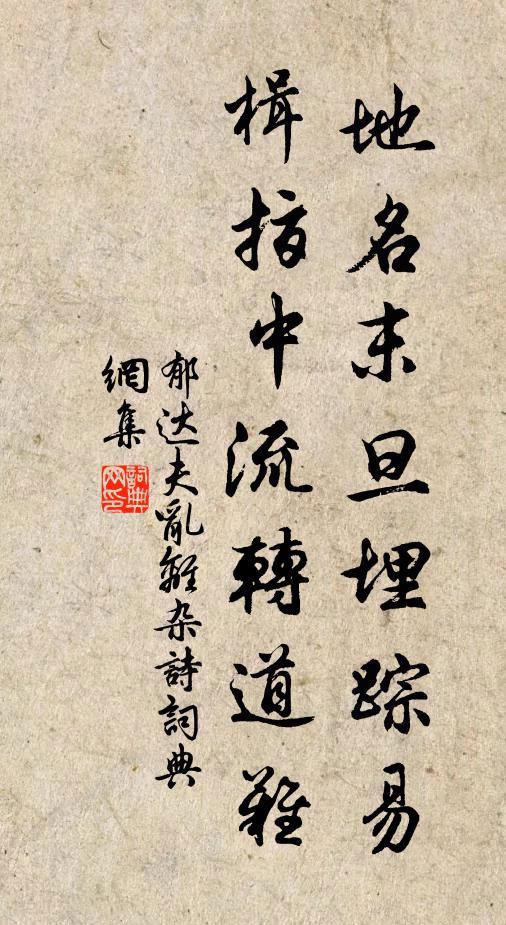 地名末旦埋踪易
楫指中流轉道難
郁达夫亂離杂詩詞典
網集
詞典網印